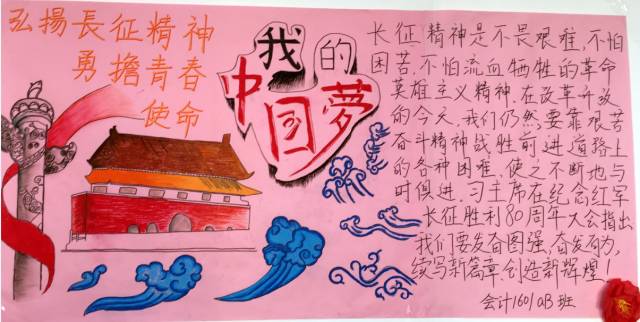 弘揚長征精神
勇擔青春
使命
我的
中国夢
长征精神是不畏艰难,不怕
困苦,不怕流血牺牲的革命
英雄主义精神,在改革开放
的今天,我们仍然要靠艰苦
奋斗精神战胜前进道路上
的各种困难,使之不断地与
时俱进,习主席在纪念红军
长征胜利80周年大会指出
我们要发奋图强,奋发有为,
续写新篇章创造新辉煌!
会计1601aB班